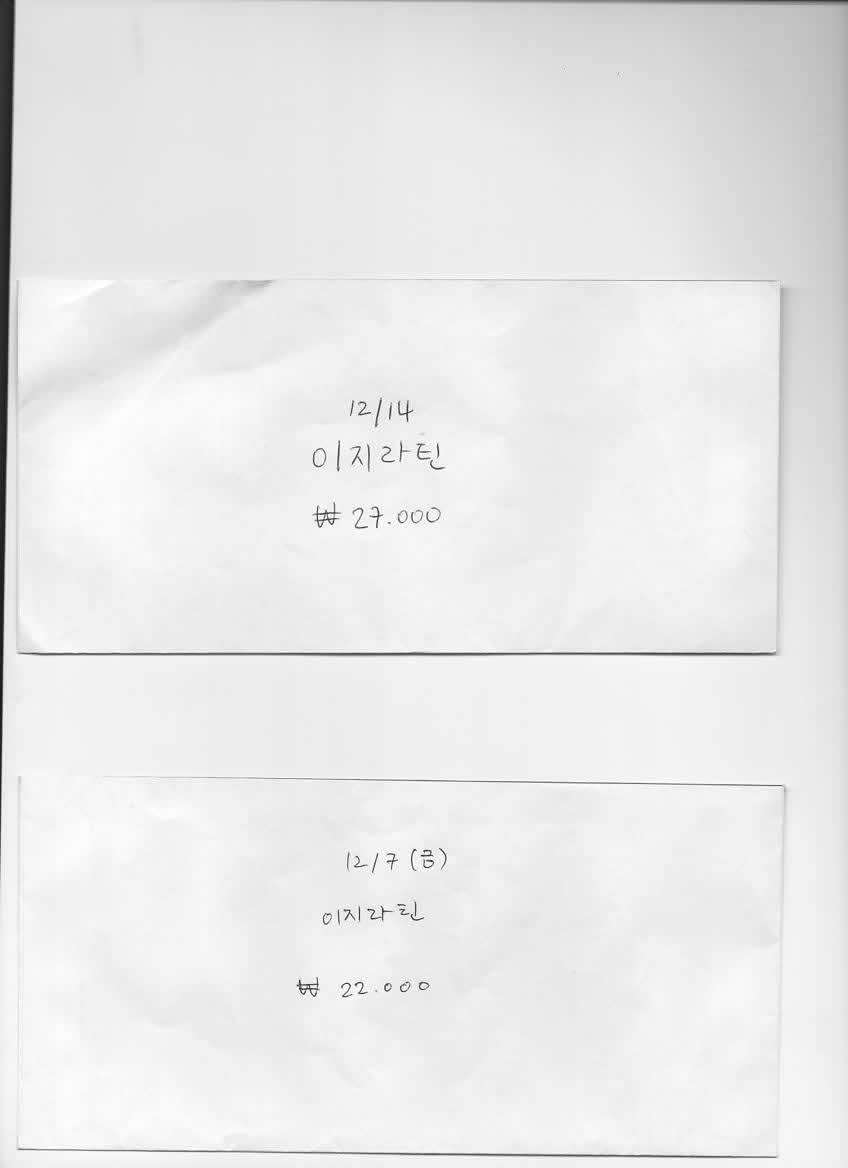 12/14
이지라틴
₩ 27.000
12/7 (금)
이지라틴
₩ 22.000